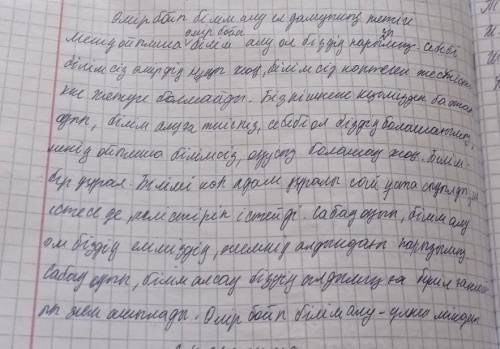 Өмір бойы білім алу ел дамуының негізі
Менің ойымша өмір бойы білім алу ол біздің парызымыз себебі
білімсіз өмірдің мәні жоқ, білімсіз көптеген жетістік
ке жетуге болмайды. Біз кішкене кезімізден бастап
оқып, білім алуға тиіспіз, себебі ол біздің болашағымыз,
менің ойымша білімсіз, оқусыз болашақ жоқ. Білім
бір құрал. Білімі жоқ адам құралы жоқ ұста сияқты,
істесе де, кемістірек істейді. Сабақ оқып, білім алу
ол біздің еліміздің, әлемнің алдындағы парызымыз
Сабақ оқып, білім алсақ біздің алдымызға бүкіл
ол әлем ашылады. Өмір бойы білім алу - үлкен міндет